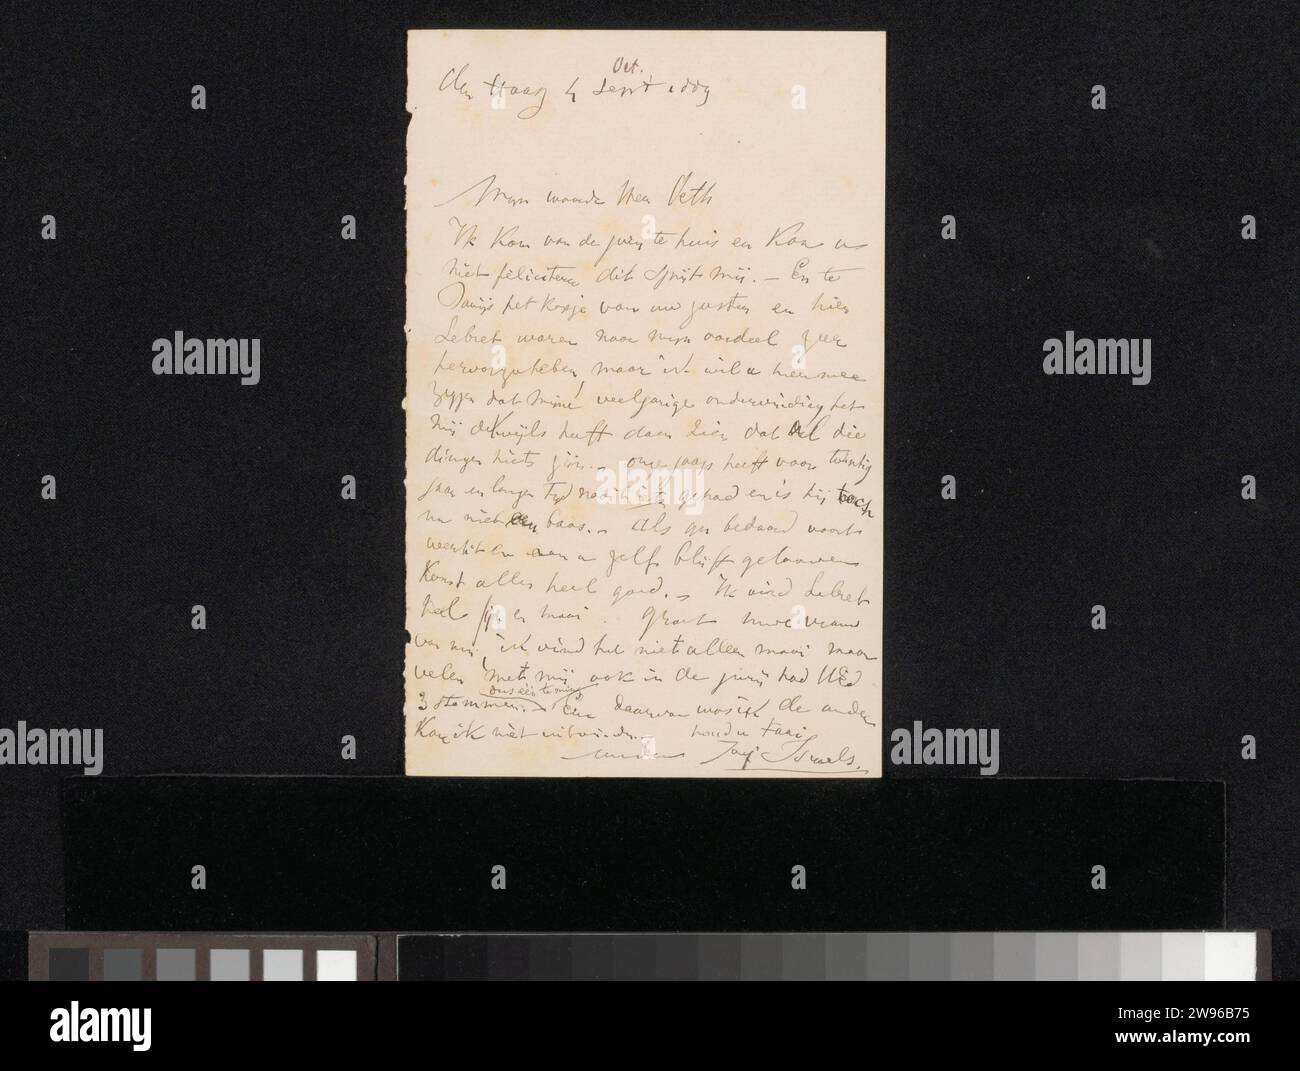 Oct.
Den Haag 4 Sept 1889
Mijn waarde Heer Veth
Ik kom van de jury te huis en kan u
niet feliciteren dit spijt mij. – En te
Parijs het kopje van uw zuster en hier
Lebret waren naar mijn oordeel zeer
hervorzuheben, maar ik wil u hiermee
zeggen dat mijne veeljarige ondervinding het
mij dikwijls heeft doen zien dat al die
dingen niets zijn. onze heeft voor twintig
jaar en langer tijd nooit iets gehad en is hij toch
nu niet een baas. – Als gij bedaard voort
werkt en aan u zelf blijft gelooven
komt alles heel goed. – Ik vind Lebret
heel fijn en mooi. Groet uwe vrouw
van mij, ik vind het niet alleen mooi maar
velen met mij ook in de jury had UEd
3 stemmen. – Een daarvan was ik de andere
kan ik niet uitvinden. – houd u taai
Jozef Israels.
a
alamy
Image ID: 2W96B75
www.alamy.com